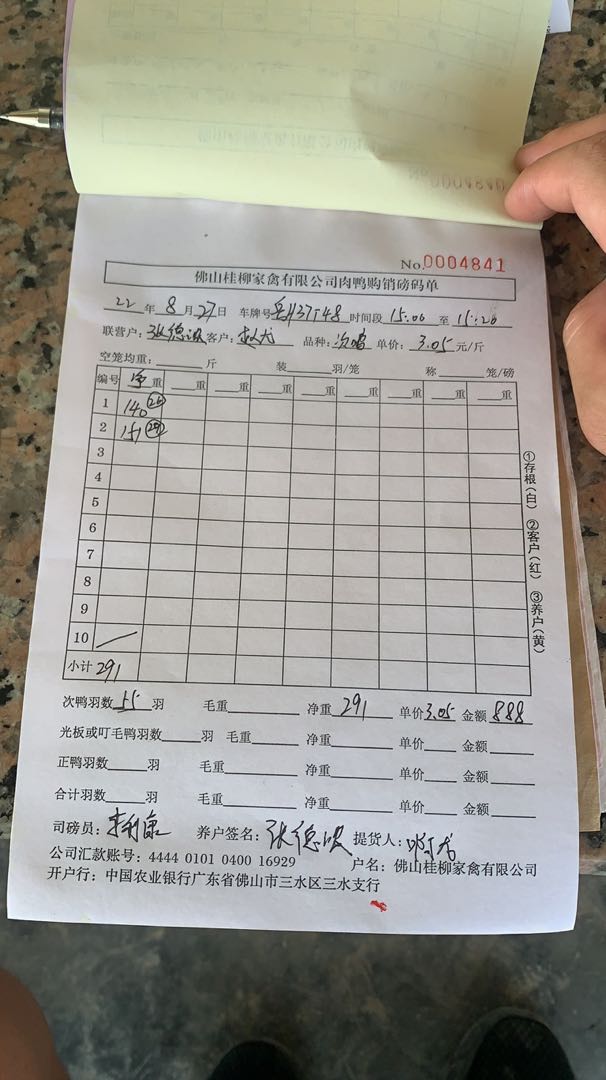 No.0004841
佛山桂柳家禽有限公司肉鸭购销磅码单
22年8月27日 车牌号 时间段15:00至15:20
联营户: 张德 客户: 品种: 单价: 3.05元/斤
空笼均重: 斤 装 羽/笼 称 笼/磅
编号 净重 重 重 重 重 重 重 重
1 140
2 151
3
4
5
6
7
8
9
10
小计 291
①存根(白) ②客户(红) ③养户(黄)
次鸭羽数55羽 毛重 净重291 单价3.05 金额888
光板或叮毛鸭羽数 羽 毛重 净重 单价 金额
正鸭羽数 羽 毛重 净重 单价 金额
合计羽数 羽 毛重 净重 单价 金额
司磅员: 养户签名: 张德 提货人:
公司汇款账号: 4444 0101 0400 16929 户名: 佛山桂柳家禽有限公司
开户行: 中国农业银行广东省佛山市三水区三水支行